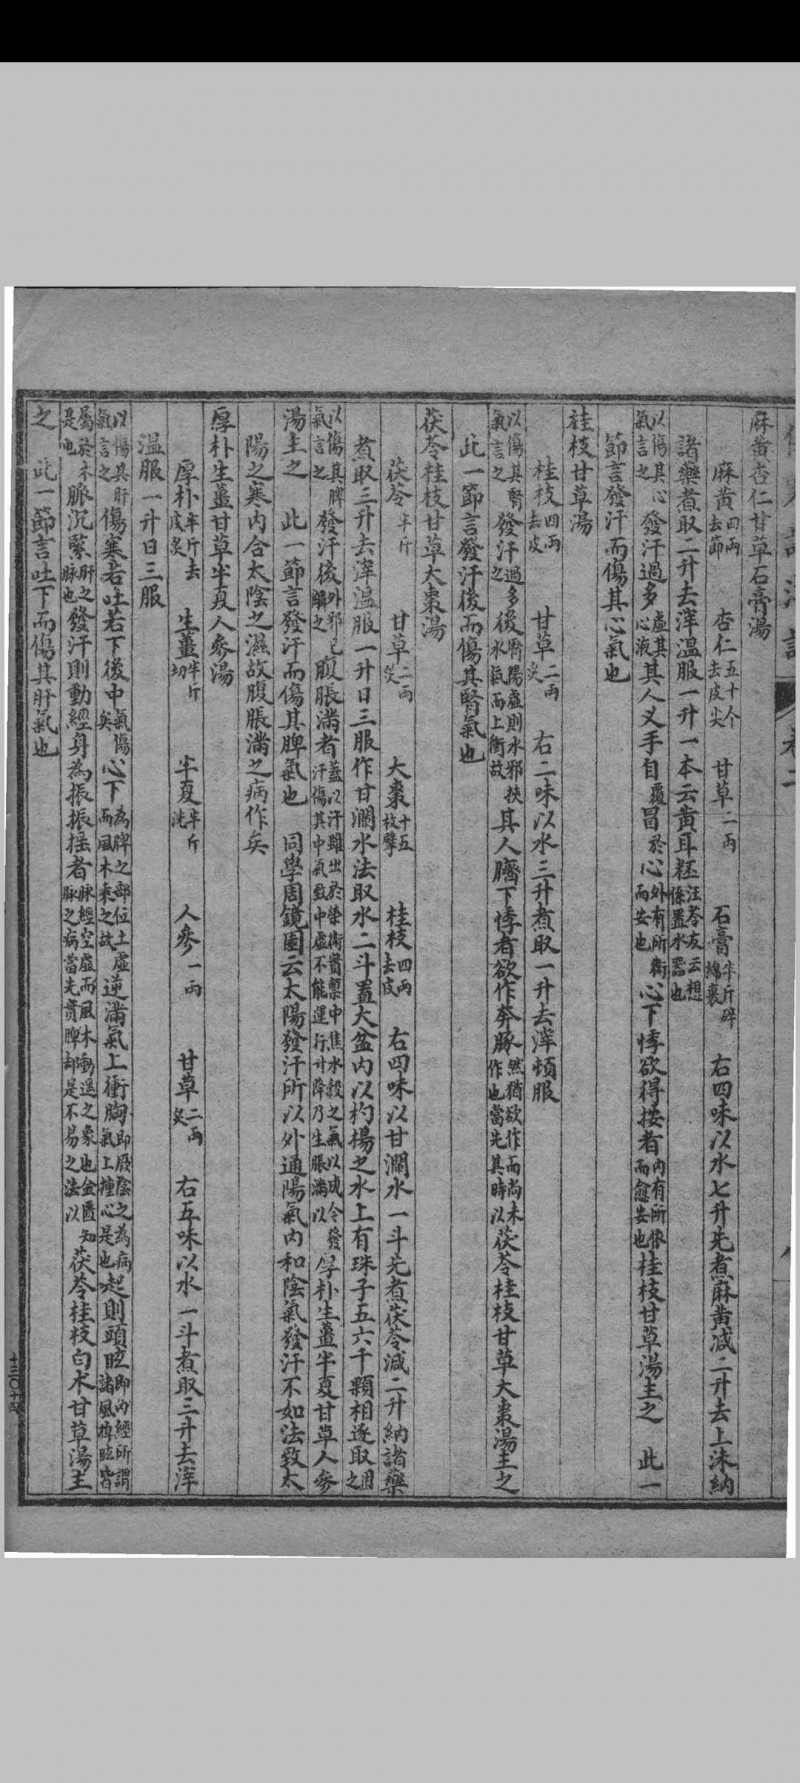 麻黃杏仁甘草石膏湯
麻黃四兩去節 杏仁五十个去皮尖 甘草二兩 石膏半斤碎綿裹 右四味以水七升先煮麻黃減二升去上沫納
諸藥煮取二升去滓溫服一升一本云黃耳柸汪苓友云想係置水器也
以傷其心氣言之發汗過多虛其心液其人叉手自覆冒於心外有所衛而安也心下悸欲得按者內有所依而愈安也桂枝甘草湯主之 此一
節言發汗而傷其心氣也
桂枝甘草湯
桂枝四兩去皮 甘草二兩炙 右二味以水三升煮取一升去滓頓服
以傷其腎氣言之發汗過多之後腎陽虛則水邪挾水氣而上衝故其人臍下悸者欲作奔豚然猶欲作而尚未作也當先其時以茯苓桂枝甘草大棗湯主之
此一節言發汗後而傷其腎氣也
茯苓桂枝甘草大棗湯
茯苓半斤 甘草二兩炙 大棗十五枚擘 桂枝四兩去皮 右四味以甘瀾水一斗先煮茯苓減二升納諸藥
煮取三升去滓溫服一升日三服作甘瀾水法取水二斗置大盆內以杓揚之水上有珠子五六千顆相逐取用之
以傷其脾氣言之發汗後外邪已解之腹脹滿者蓋以汗雖出於榮衛實稟中焦水穀之氣以成今發汗傷其中氣致中虛不能運行升降乃生脹滿以厚朴生薑半夏甘草人參
湯主之 此一節言發汗而傷其脾氣也 同學周鏡園云太陽發汗所以外通陽氣內和陰氣發汗不如法致太
陽之寒內合太陰之濕故腹脹滿之病作矣
厚朴生薑甘草半夏人參湯
厚朴半斤去皮炙 生薑半斤切 半夏半斤洗 人參一兩 甘草二兩炙 右五味以水一斗煮取三升去滓
溫服一升日三服
以傷其肝氣言之傷寒若吐若下後中氣傷矣心下為脾之部位土虛而風木乘之故逆滿氣上衝胸即厥陰之為病氣上撞心是也起則頭眩即內經所謂諸風掉眩皆
屬於木是也脈沉緊肝之脉也發汗則動經身為振振搖者脉經空虛而風木動搖之象也金匱知脉之病當先實脾却是不易之法以茯苓桂枝白朮甘草湯主
之 此一節言吐下而傷其肝氣也